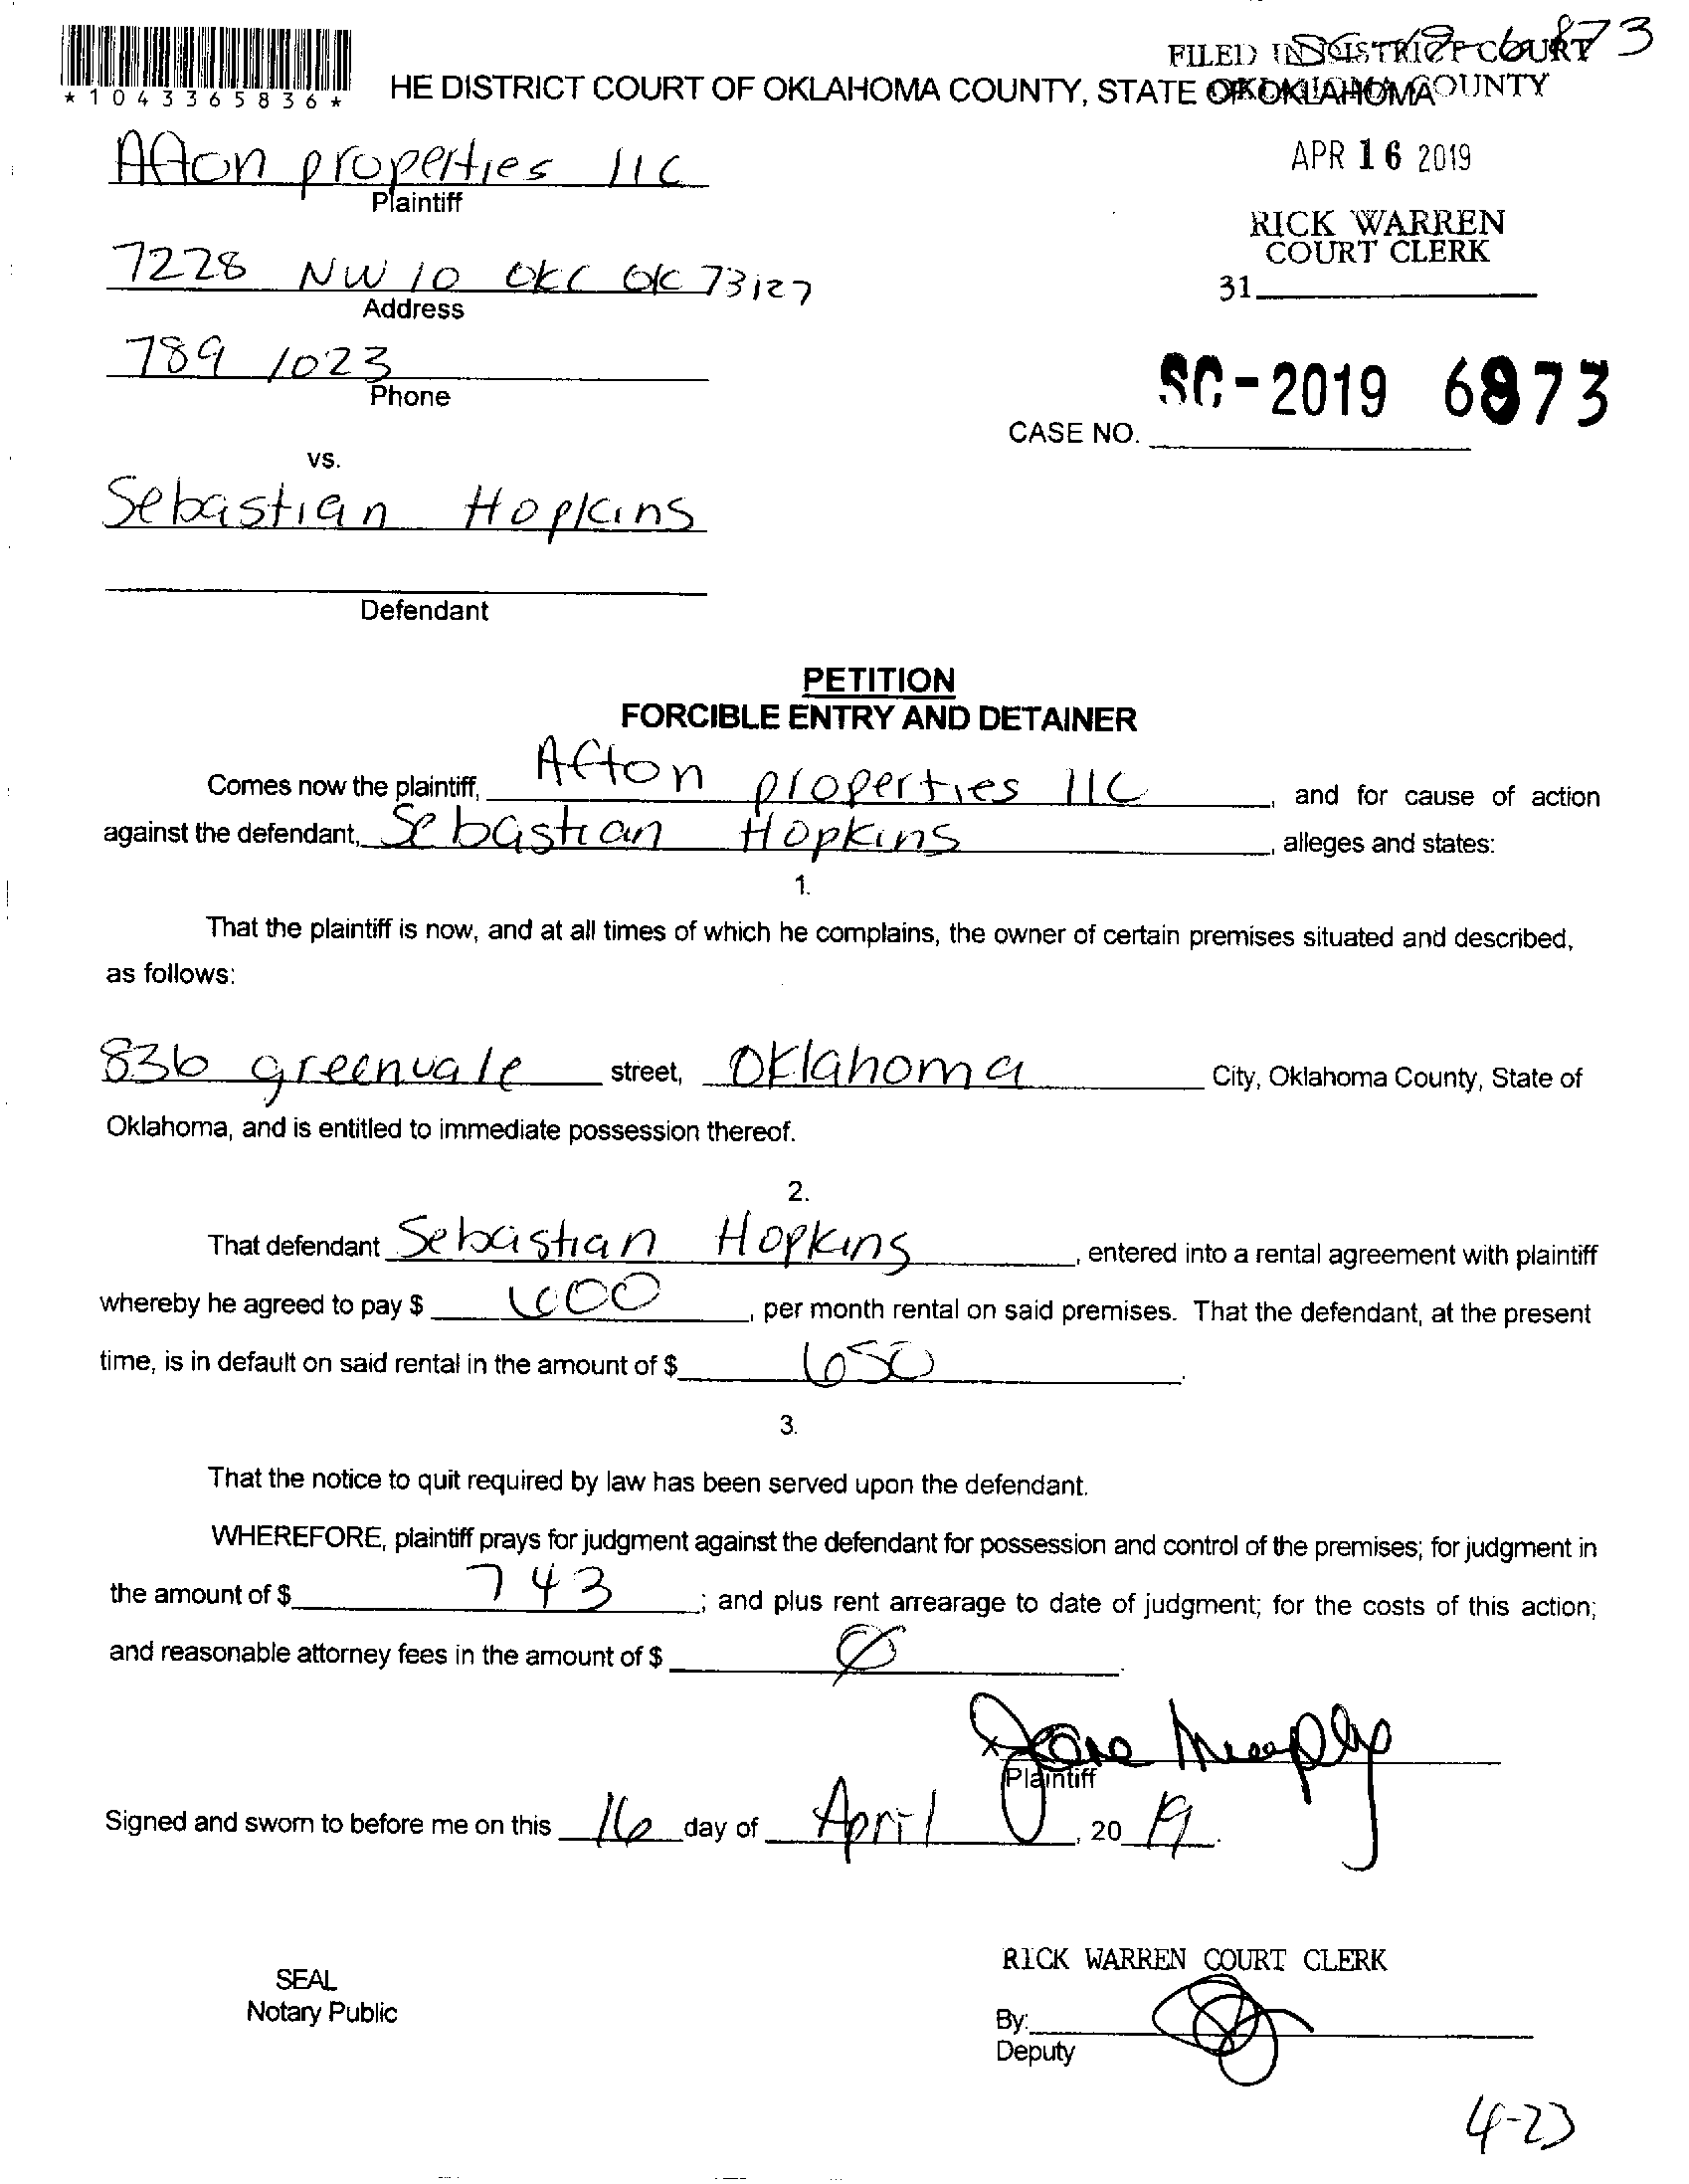 SC-19-6873
FILED IN DISTRICT COURT
OKLAHOMA COUNTY
*1043365836*
HE DISTRICT COURT OF OKLAHOMA COUNTY, STATE OF OKLAHOMA
Afton properties llc
Plaintiff
APR 16 2019
RICK WARREN
COURT CLERK
31
7228 NW 10 OKC OK 73127
Address
789 1023
Phone
SC-2019 6873
CASE NO.
vs.
Sebastian Hopkins
Defendant
PETITION
FORCIBLE ENTRY AND DETAINER
Comes now the plaintiff, Afton properties llc, and for cause of action
against the defendant, Sebastian Hopkins, alleges and states:
1.
That the plaintiff is now, and at all times of which he complains, the owner of certain premises situated and described,
as follows:
836 greenvale street, Oklahoma City, Oklahoma County, State of
Oklahoma, and is entitled to immediate possession thereof.
2.
That defendant Sebastian Hopkins, entered into a rental agreement with plaintiff
whereby he agreed to pay $ 600, per month rental on said premises. That the defendant, at the present
time, is in default on said rental in the amount of $ 650.
3.
That the notice to quit required by law has been served upon the defendant.
WHEREFORE, plaintiff prays for judgment against the defendant for possession and control of the premises; for judgment in
the amount of $ 743; and plus rent arrearage to date of judgment; for the costs of this action;
and reasonable attorney fees in the amount of $ Ø.
x
Plaintiff
Signed and sworn to before me on this 16 day of April, 20 19.
RICK WARREN COURT CLERK
SEAL
Notary Public
By:
Deputy
4-23